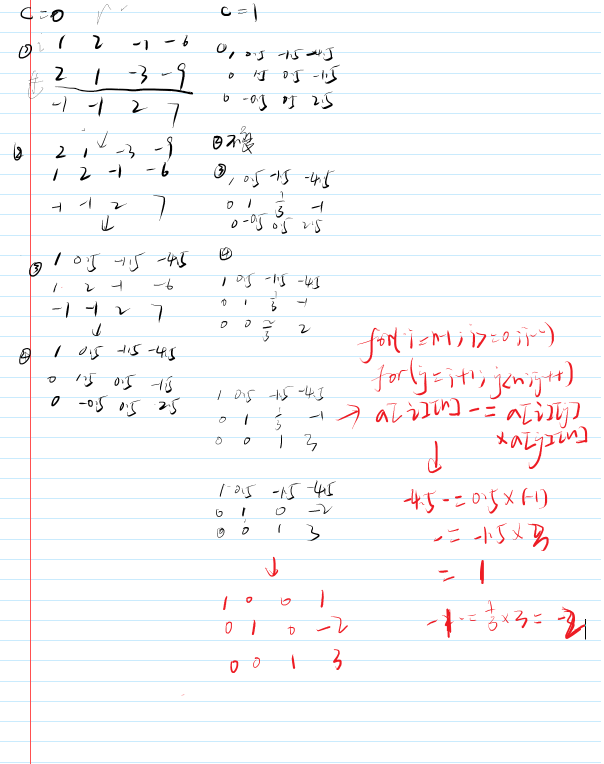 C=0
① 1 2 -1 -6
2 1 -3 -9
-1 -1 2 7
② 2 1 -3 -9
1 2 -1 -6
-1 -1 2 7
③ 1 0.5 -1.5 -4.5
1 2 -1 -6
-1 -1 2 7
④ 1 0.5 -1.5 -4.5
0 1.5 0.5 -1.5
0 -0.5 0.5 2.5
C=1
①, 0.5 -1.5 -4.5
0 1.5 0.5 -1.5
0 -0.5 0.5 2.5
② 不变
③ 1 0.5 -1.5 -4.5
0 1 1/3 -1
0 -0.5 0.5 2.5
④
1 0.5 -1.5 -4.5
0 1 1/3 -1
0 0 2/3 2
1 0.5 -1.5 -4.5
0 1 1/3 -1
0 0 1 3
1 0.5 -1.5 -4.5
0 1 0 -2
0 0 1 3
↓
1 0 0 1
0 1 0 -2
0 0 1 3
for(i=n-1;i>=0;i--)
for(j=i+1;j<n;j++)
→ a[i][n] -= a[i][j]
×a[j][n]
↓
-4.5 -= 0.5×(-1)
-= -1.5×3
= 1
-1 -= 1/3×3 = -2